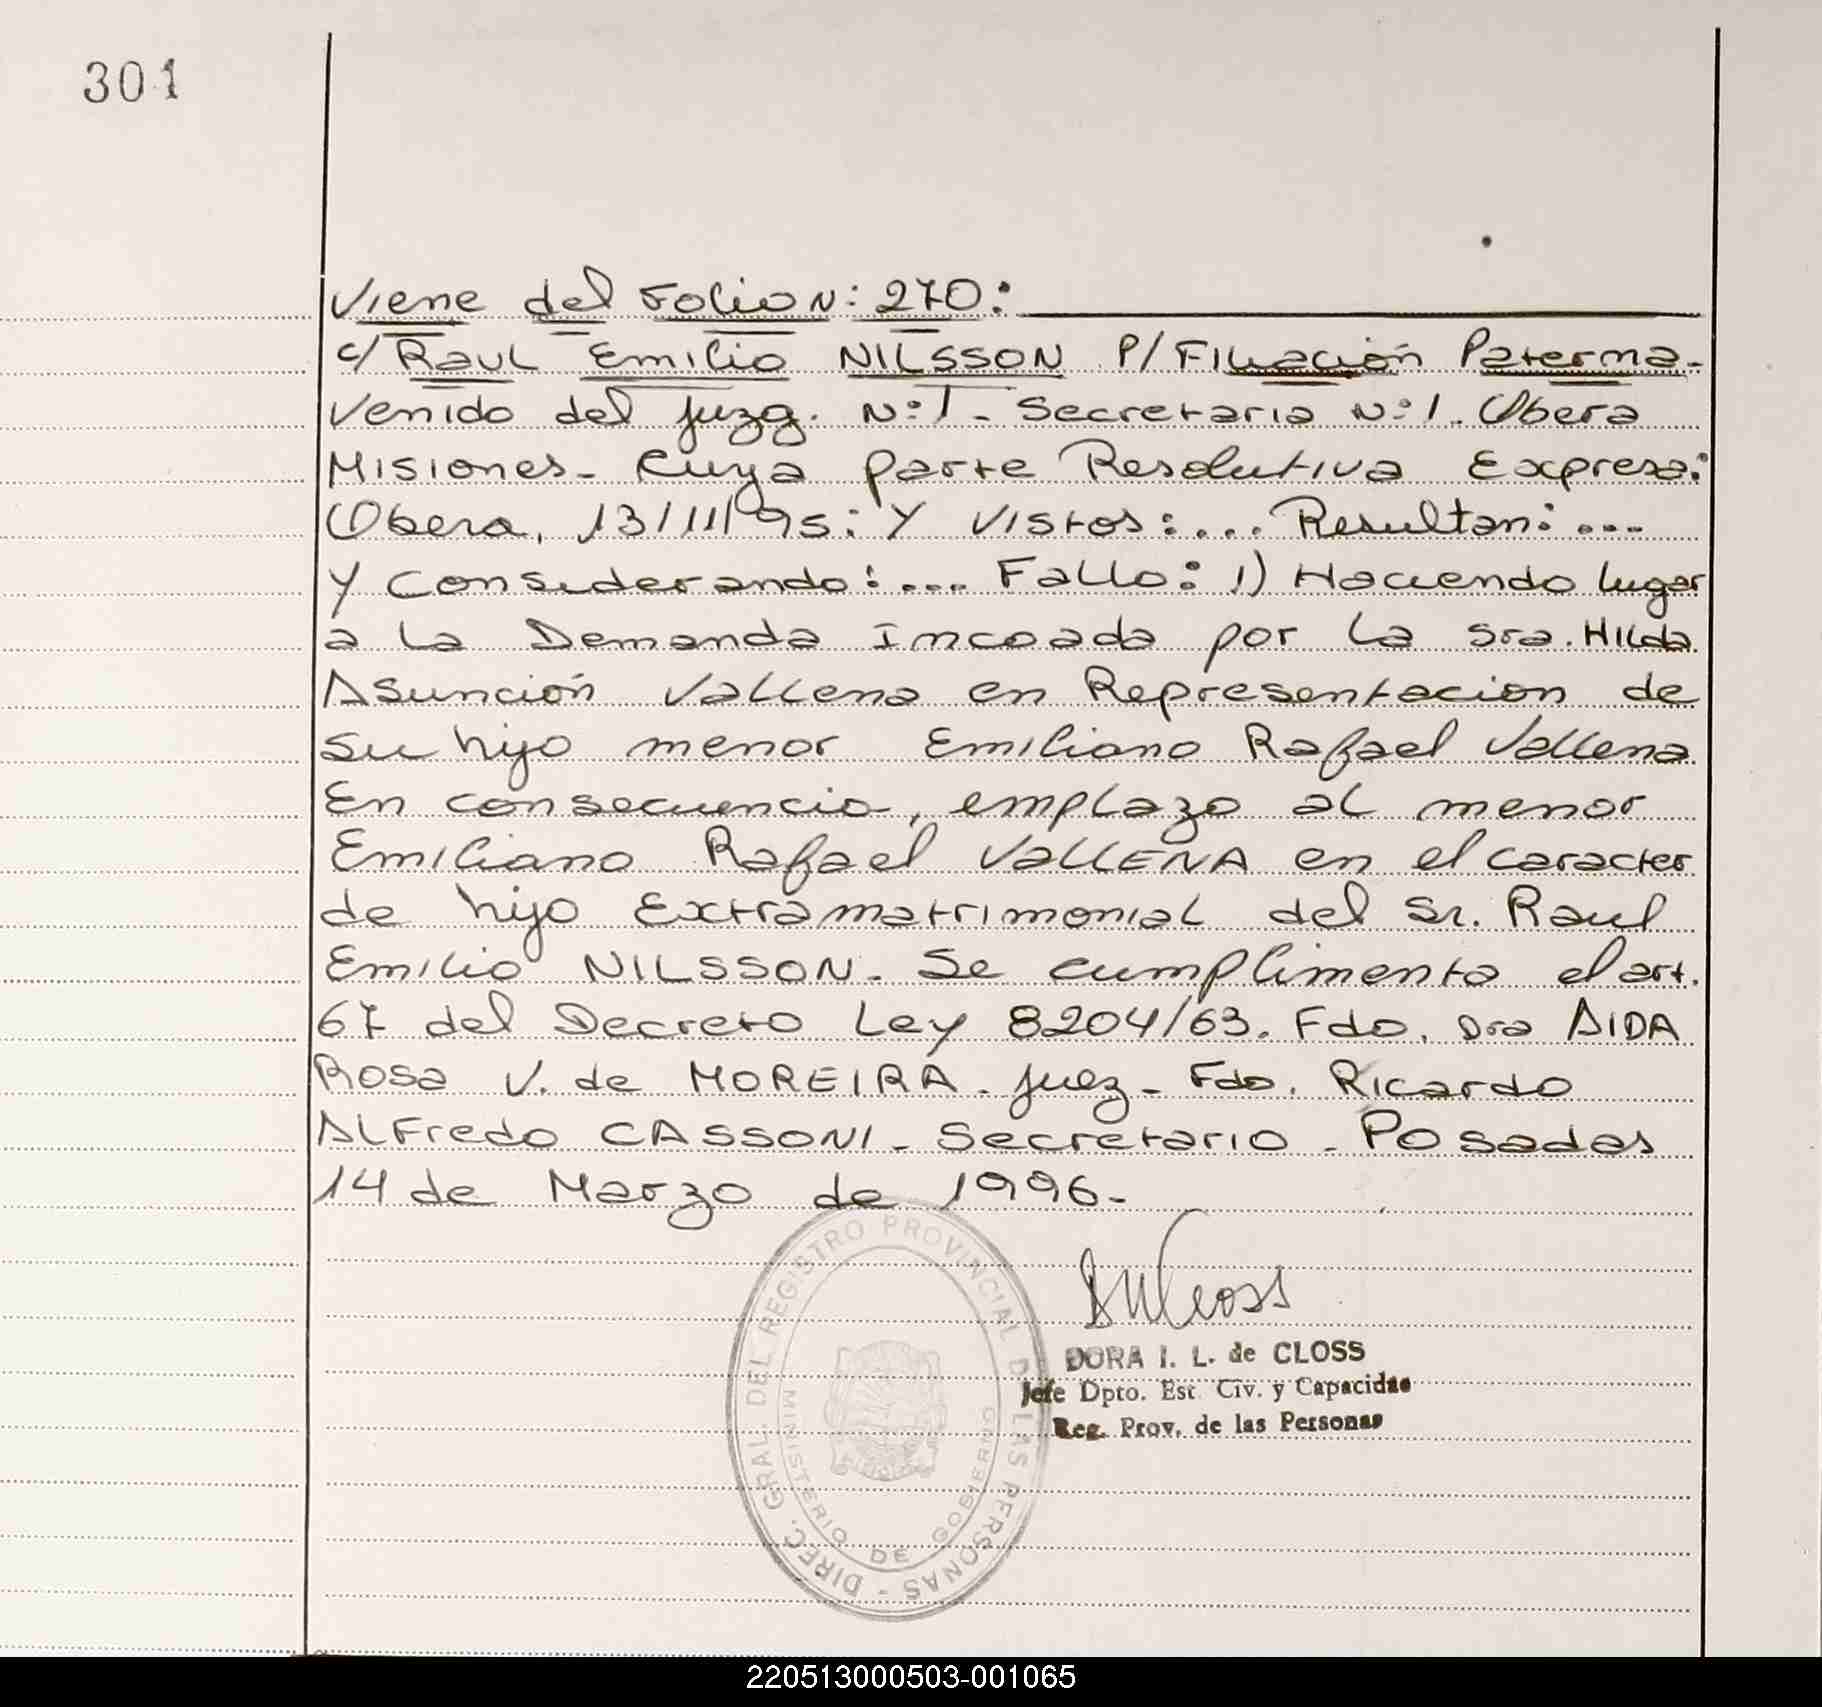 301
Viene del Folio N: 270:
c/ Raul Emilio NILSSON P/ Filiación Paterna-
Venido del Juzg. N:1- Secretaria N:1. Obera
Misiones- Cuya parte Resolutiva Expresa:
Obera, 13/11/95: Y Vistos:... Resultan:...
Y Considerando:.... Fallo: 1) Haciendo lugar
a la Demanda Incoada por la Sra. Hilda
Asunción Vallena en Representacion de
su hijo menor Emiliano Rafael Vallena
En consecuencia, emplazo al menor
Emiliano Rafael VALLENA en el caracter
de hijo Extramatrimonial del Sr. Raul
Emilio NILSSON- Se cumplimenta el art.
67 del Decreto Ley 8204/63. Fdo. Dra AIDA
Rosa V. de MOREIRA- Juez- Fdo. Ricardo
Alfredo CASSONI- Secretario- Posadas
14 de Marzo de 1996-
DIREC. GRAL. DEL REGISTRO PROVINCIAL DE LAS PERSONAS -
MINISTERIO DE GOBIERNO
DORA I. L. de CLOSS
Jefe Dpto. Est. Civ. y Capacidad
Reg. Prov. de las Personas
220513000503-001065